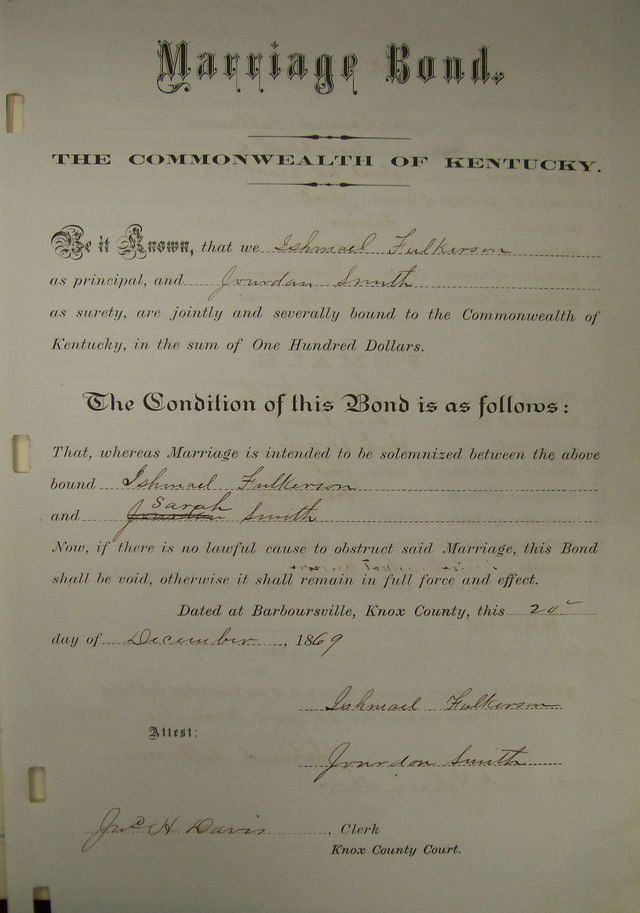 Marriage Bond,
THE COMMONWEALTH OF KENTUCKY.
Be it Known, that we Ishmael Fulkerson
as principal, and Jourdan Smith
as surety, are jointly and severally bound to the Commonwealth of
Kentucky, in the sum of One Hundred Dollars.
The Condition of this Bond is as follows:
That, whereas Marriage is intended to be solemnized between the above
bound Ishmael Fulkerson
Sarah
and Jourdan Smith
Now, if there is no lawful cause to obstruct said Marriage, this Bond
shall be void, otherwise it shall remain in full force and effect.
Dated at Barboursville, Knox County, this 20
day of December, 1869
Ishmael Fulkerson
Attest:
Jourdon Smith
Jno H Davis, Clerk
Knox County Court.